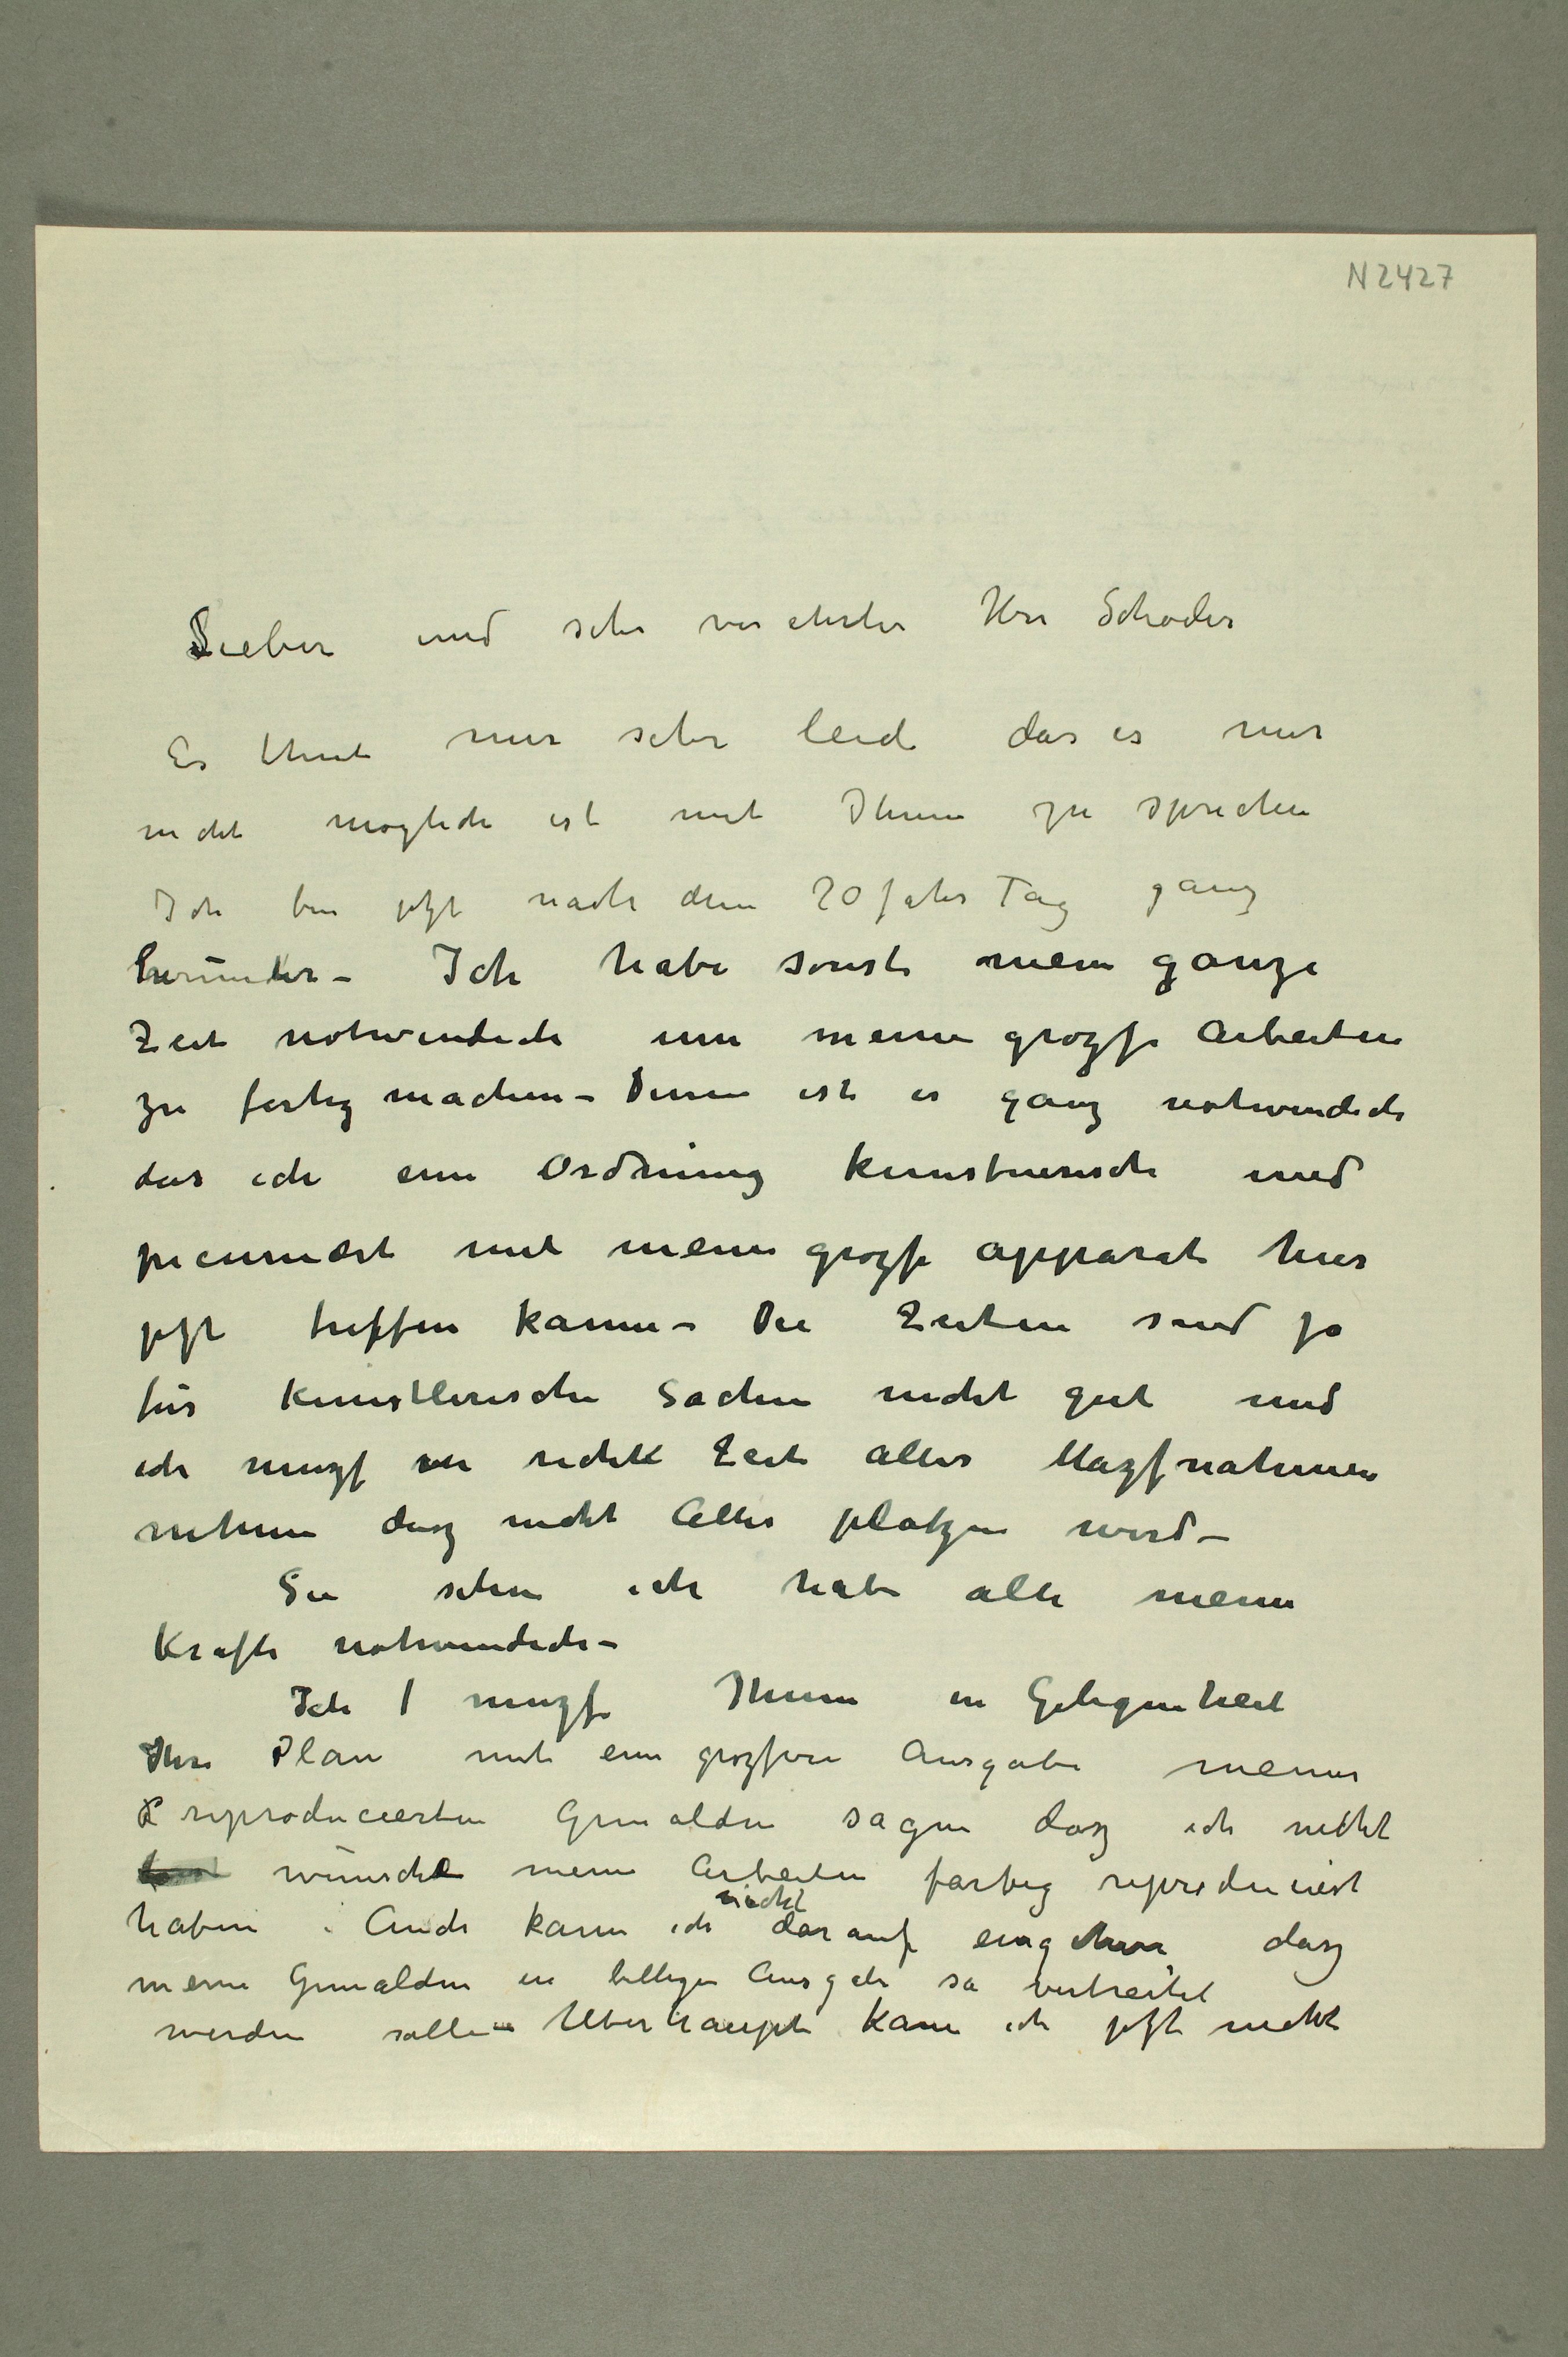 N 2427
Lieber und sehr verehrter Herr Schröder
Es thut mir sehr leid das es mir
nicht möglich ist mit Ihnen zu sprechen
Ich bin jetzt nach dem 70 Jahrs Tag ganz
herunter – Ich habe sonst mein ganze
Zeit notwendich um meine grozse Arbeiten
zu fertig machen – Denn ist es ganz notwendich
das ich eine Ordnung kunstnerisch und
pecuniært mit meine grozse apparat hier
jetzt treffen kanne – Die Zeiten sind ja
für kunstlerische Sachen nicht gut und
ich muzs in richte Zeit alles Mazsnahmen
nehmen dasz nicht Alles platzen wird –
Sie sehen ich habe alle meine
Krafte notwendich –
Ich muzs Ihnen in Gelegenheit
Ihre Plan mit eine grozsere Ausgabe meiner
reproducierten Gemälden sagen dasz ich nicht
wünscht meine Arbeiten farbig reproduciert
haben. Auch kann ich nicht darauf eingehen dasz
meine Gemälden in billige Ausgabe so verbreitet
werden solle – Uberhaupt kann ich jetzt nicht